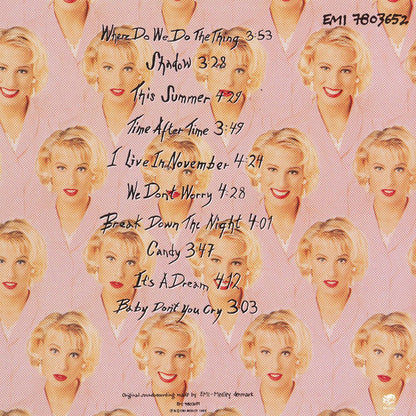 EMI 7803652
Where Do We Do The Thing 3:53
Shadow 3:28
This Summer 4:29
Time After Time 3:49
I Live In November 4:24
We Dont Worry 4:28
Break Down The Night 4:01
Candy 3:47
It's A Dream 4:12
Baby Don't you Cry 3:03
Original soundrecording made by EMI-Medley denmark